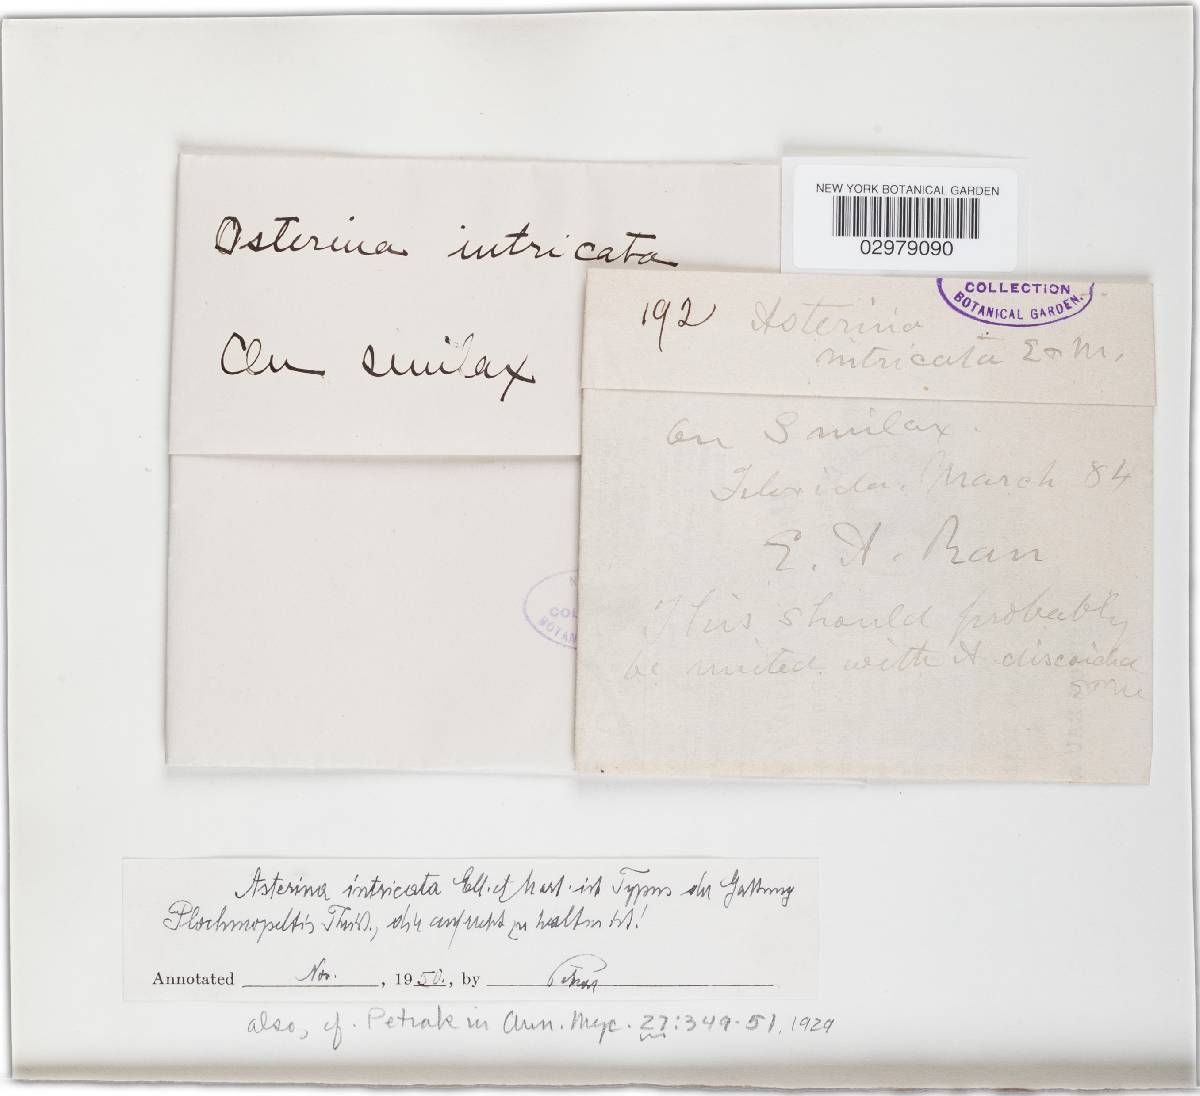 Asterina intricata
On Smilax
NEW YORK BOTANICAL GARDEN
02979090
COLLECTION
BOTANICAL GARDEN.
192 Asterina
intricata E & M.
On Smilax.
Florida. March 84
E. A. Rau
This should probably
be united with A discoidea
E & M
COL
BOTAN
Asterina intricata Ell. et Mart. ist Typus der Gattung
Plochmopeltis Theiss., die aufrecht zu halten ist!
Annotated Nov. , 1950, by Petrak
also, cf. Petrak in Ann. Myc. 27:349-51, 1929